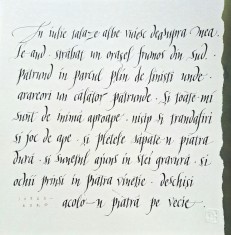 În iulie talaze albe vuiesc deasupra mea.
Te-aud străbat un orășel frumos din sud.
Pătrund în parcul plin de liniști unde
arareori un călător pătrunde. Și toate-mi
sunt de mână aproape. nisip și trandafiri
și joc de ape. și pletele săpate-n piatra
dură. și sunetul ajuns în stei gravură. și
ochii prinși în piatra vineție. deschiși
acolo-n piatră pe vecie.